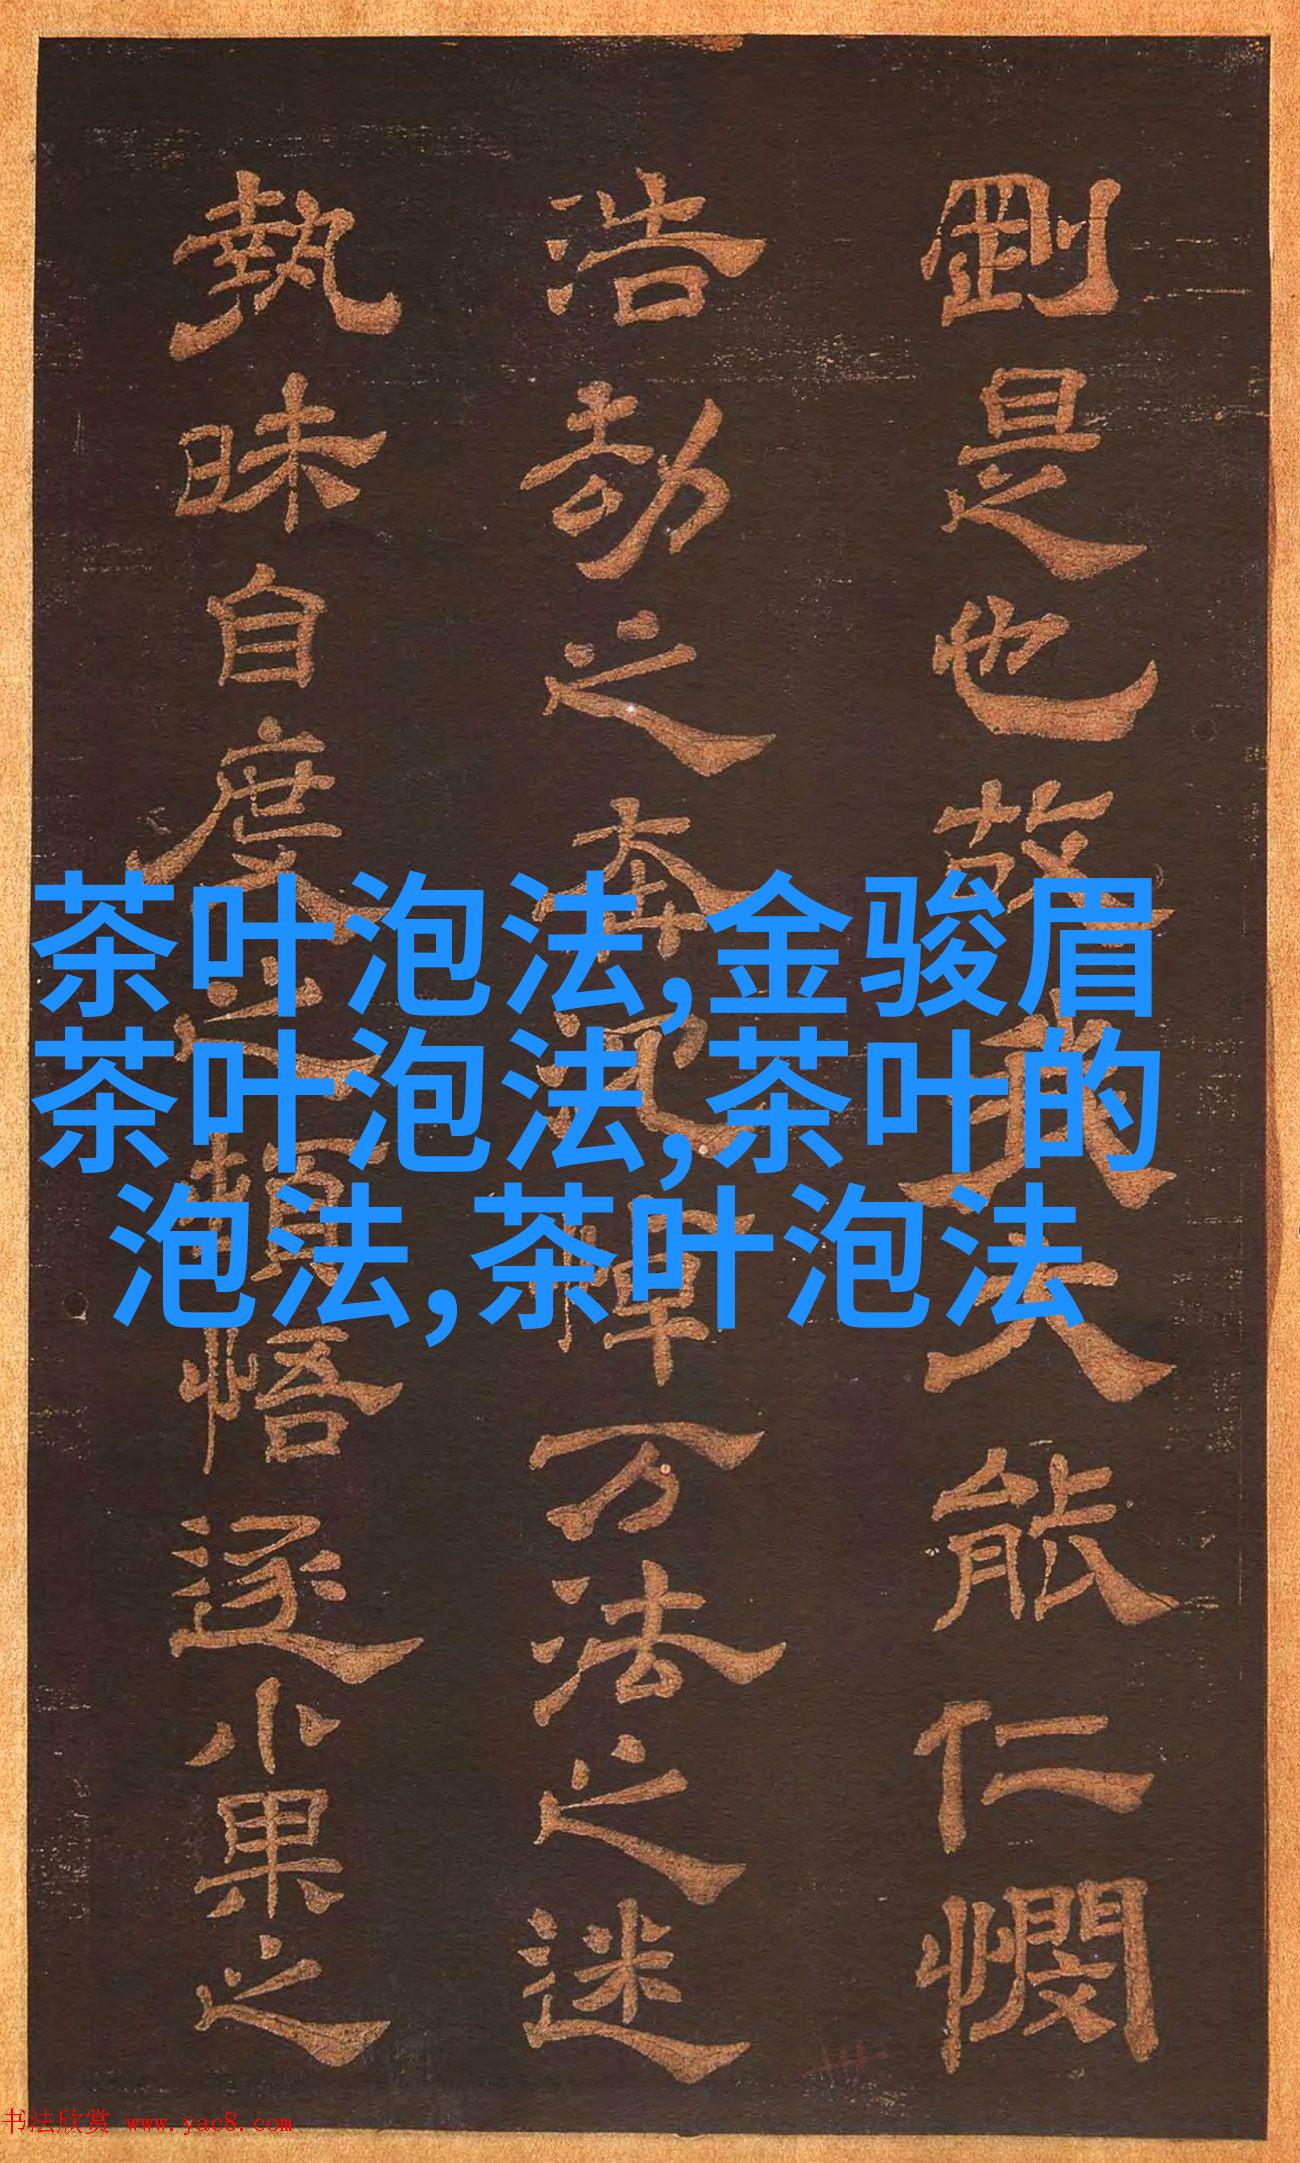 剛是也故我大能仁憫
浩劫之奔憚万法之迷
執昧自度之悟逐小果之
茶叶泡法,金骏眉
茶叶泡法,茶叶的
泡法,茶叶泡法
书法欣赏 www.yac8.com